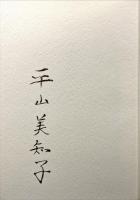 平山美知子